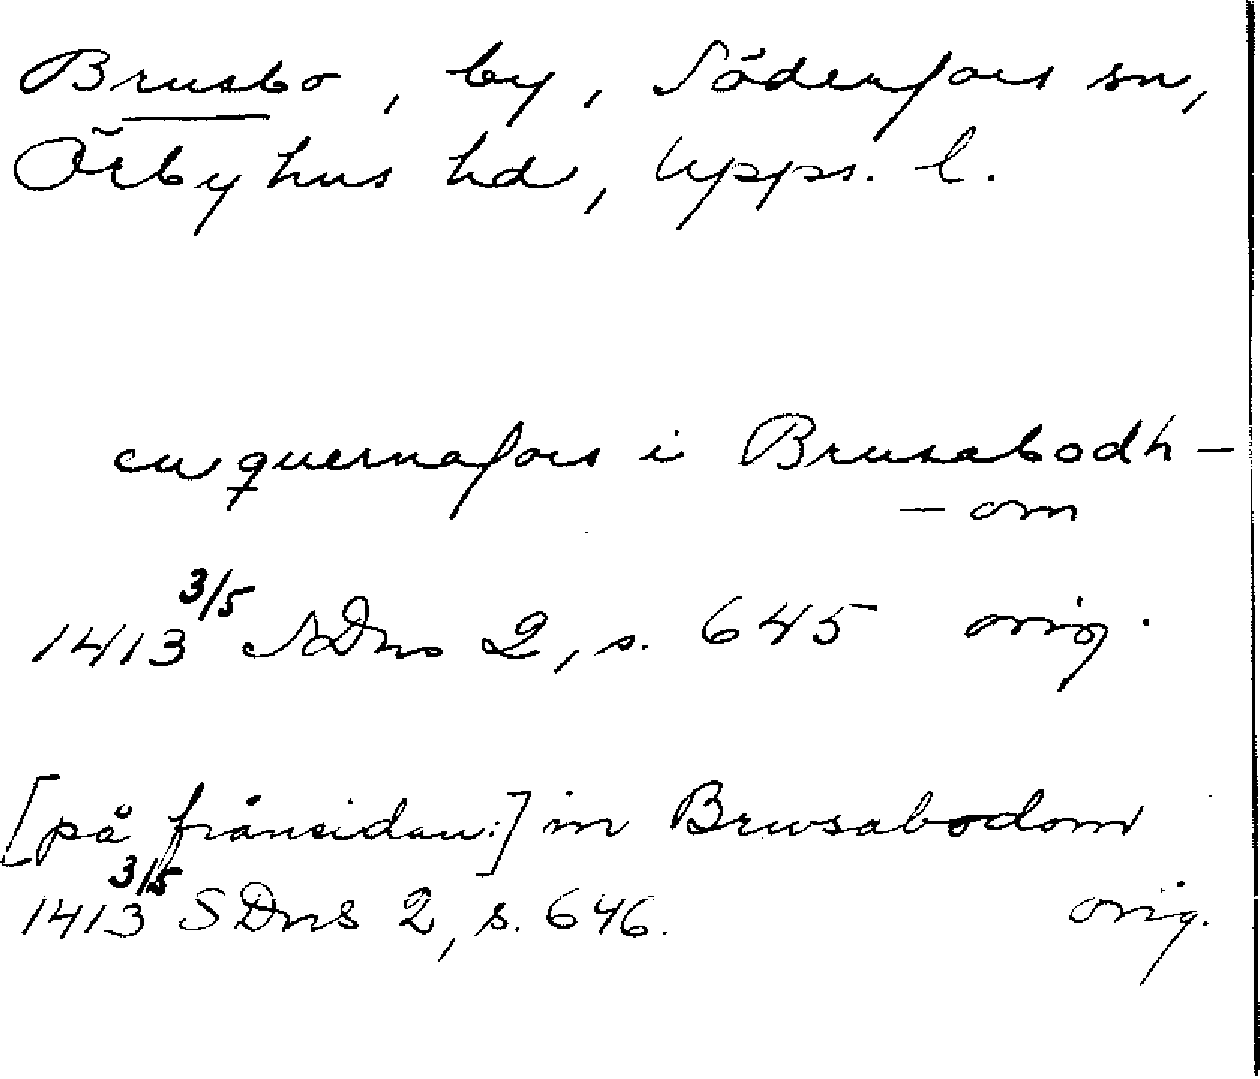 Brusbo, by, Söderfors sn,
Örbyhus hd, Upps. l.
en quernafors i Brusabodh-
-om
1413 3/5 SDns 2, s. 645 orig.
[på frånsidan:] in Brwsabodom
1413 3/5 SDns 2, s. 646. orig.